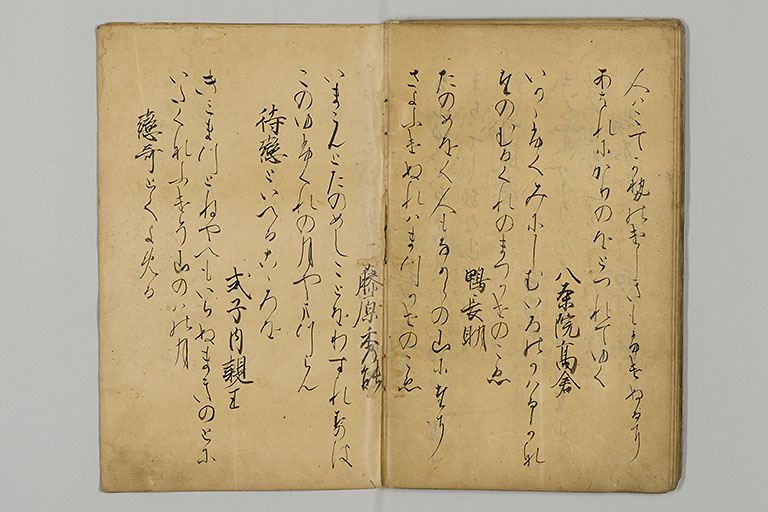 人はこてかせのけしきもふけぬるに
あはれにかりのをとつれてゆく
八条院高倉
いかゝふくみにしむいろのかはるかな
たのむるくれのまつかせのこゑ
鴨長明
たのめをく人もなからの山にたに
さよふけぬれはまつかせのこゑ
藤原秀能
いまこんとたのめしことをわすれすは
このゆふくれの月やまつらん
待戀といへるこゝろを
式子内親王
きみまつとねやへもいらぬまきのとに
いたくなふけそ山のはの月
戀哥とてよめる